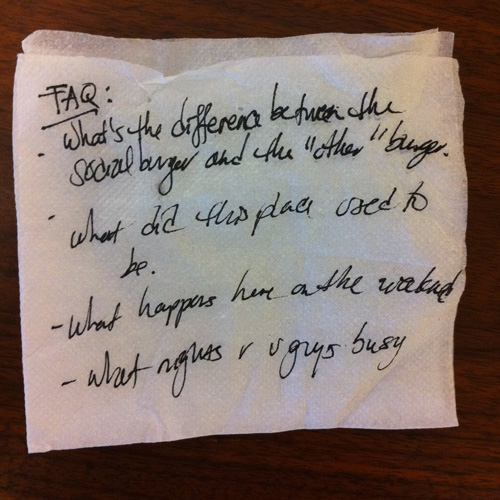 FAQ:
- What's the difference between the
social burger and the "other" burger.
- what did this place used to
be.
- what happens here on the weekend
- what nights r u guys busy